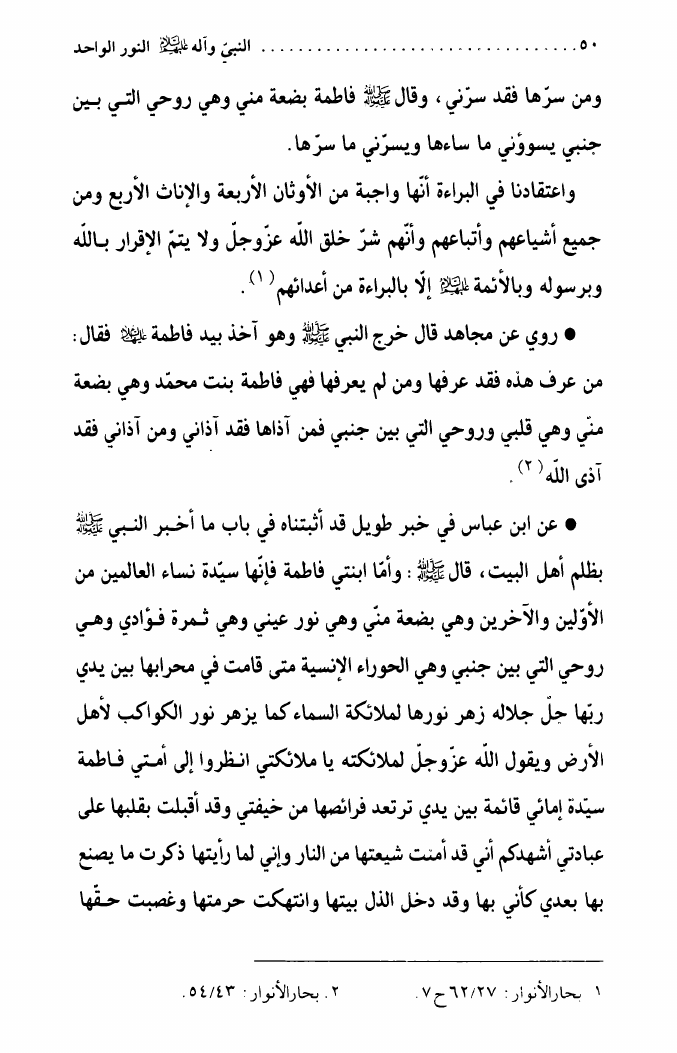 ٥٠ ................................. النبيّ وآله عليهم‌السلام النور الواحد
ومن سرّها فقد سرّني، وقال ﷺ فاطمة بضعة مني وهي روحي التـي بـين
جنبي يسوؤني ما ساءها ويسرّني ما سرّها.
واعتقادنا في البراءة أنّها واجبة من الأوثان الأربعة والإناث الأربع ومن
جميع أشياعهم وأتباعهم وأنّهم شرّ خلق اللّه عزّوجلّ ولا يتمّ الإقرار بـاللّه
وبرسوله وبالأئمة عليهم‌السلام إلّا بالبراءة من أعدائهم(١).
● روي عن مجاهد قال خرج النبي ﷺ وهو آخذ بيد فاطمة عليها‌السلام فقال:
من عرف هذه فقد عرفها ومن لم يعرفها فهي فاطمة بنت محمّد وهي بضعة
منّي وهي قلبي وروحي التي بين جنبي فمن آذاها فقد آذاني ومن آذاني فقد
آذى اللّه(٢).
● عن ابن عباس في خبر طويل قد أثبتناه في باب ما أخـبر النـبي ﷺ
بظلم أهل البيت، قال ﷺ: وأمّا ابنتي فاطمة فإنّها سيّدة نساء العالمين من
الأوّلين والآخرين وهي بضعة منّي وهي نور عيني وهي ثـمرة فـؤادي وهـي
روحي التي بين جنبي وهي الحوراء الإنسية متى قامت في محرابها بين يدي
ربّها جلّ جلاله زهر نورها لملائكة السماء كما يزهر نور الكواكب لأهل
الأرض ويقول اللّه عزّوجلّ لملائكته يا ملائكتي انـظروا إلى أمـتي فـاطمة
سيّدة إمائي قائمة بين يدي ترتعد فرائصها من خيفتي وقد أقبلت بقلبها على
عبادتي أشهدكم أني قد أمنت شيعتها من النار وإني لما رأيتها ذكرت ما يصنع
بها بعدي كأني بها وقد دخل الذل بيتها وانتهكت حرمتها وغصبت حـقّها
١ بحارالأنوار: ٦٢/٢٧ ح٧. ٢. بحارالأنوار: ٥٤/٤٣.